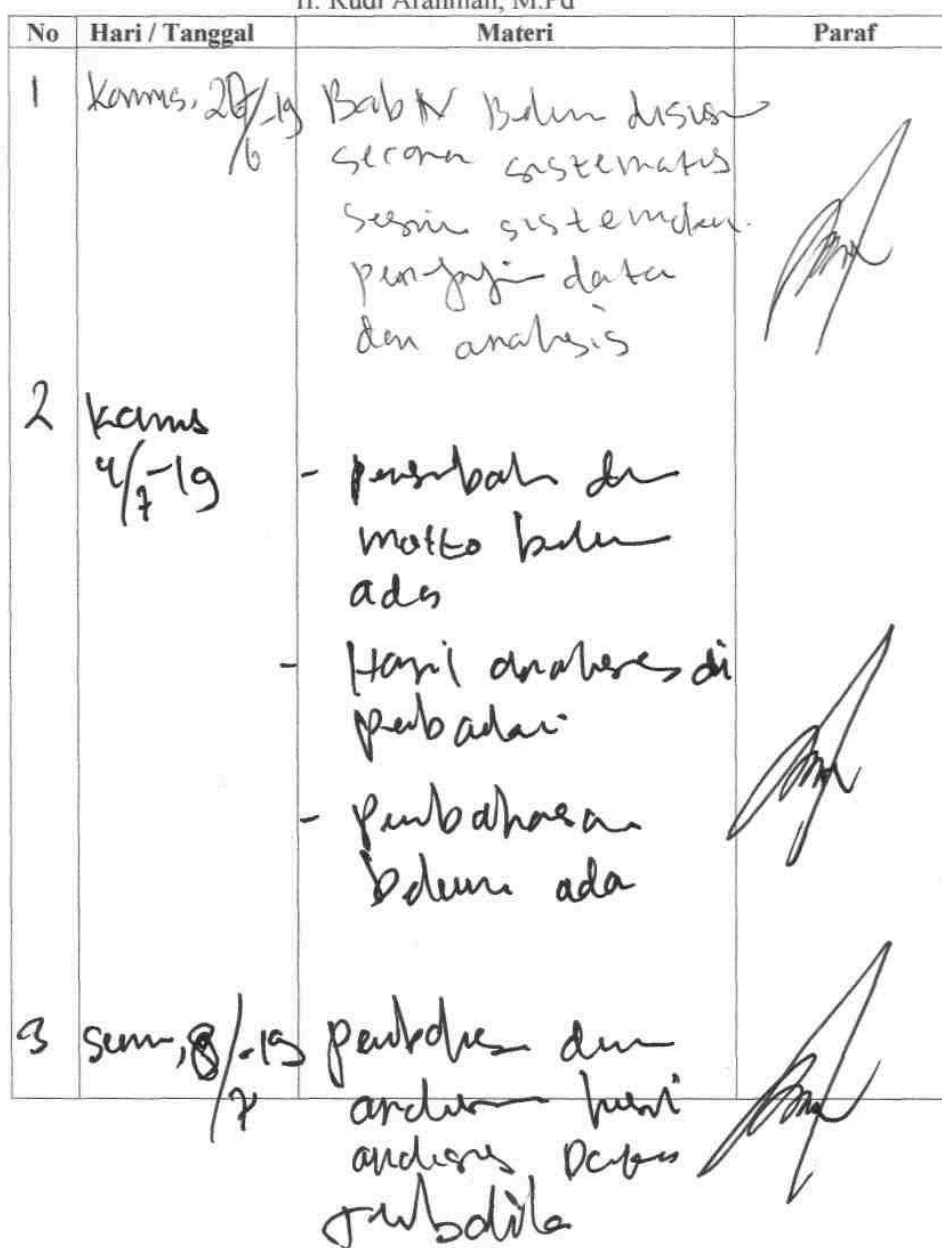 H. Rudi Arahman, M.Pd
No Hari / Tanggal Materi Paraf
1 Kamis, 20/6-19 Bab IV Belum disusun
secara sistematis
sesuai sistematika
penyajian data
dan analisis
2 Kamis
4/7-19 - persembahan dan
motto belum
ada
- Hasil analisis di
perbaiki
- Pembahasan
belum ada
3 Senin, 8/7-19 pembahasan dan
hasil
analisis